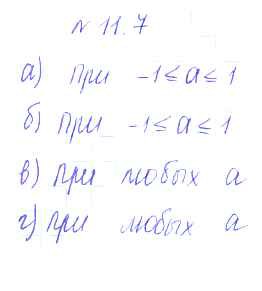 № 11.7
а) при -1 ≤ a ≤ 1
б) при -1 ≤ a ≤ 1
в) при любых a
г) при любых a